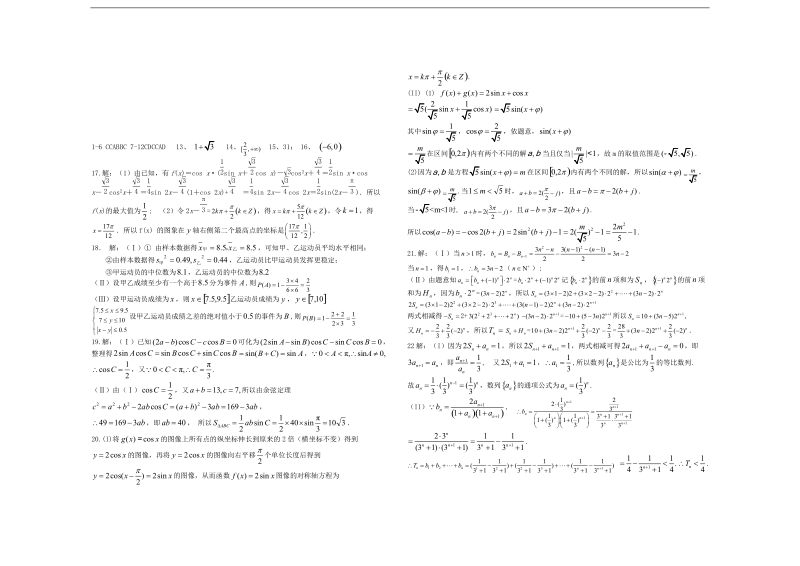 1-6 CCABBC 7-12DCDCCAD  13、 1+√3  14、[2/3,+∞)  15、31; 16、 (-6,0)
17.解: (1)由已知, 有 f(x)=cos x·(1/2 sin x+√3/2 cos x)-√3cos²x+√3/4=1/2 sin x·cos
x-√3/2 cos²x+√3/4=1/4 sin 2x-√3/4(1+cos 2x)+√3/4=1/4 sin 2x-√3/4 cos 2x=1/2 sin(2x-π/3). 所以
f(x)的最大值为1/2; (2)令2x-π/3=2kπ+π/2(k∈Z), 得x=kπ+5π/12(k∈Z), 令k=1, 得
x=17π/12. 所以f(x)的图象在y轴右侧第二个最高点的坐标是(17π/12,1/2).
18. 解: (Ⅰ)① 由样本数据得x甲=8.5,x乙=8.5, 可知甲、乙运动员平均水平相同;
②由样本数据得s²甲=0.49,s²乙=0.44, 乙运动员比甲运动员发挥更稳定;
③甲运动员的中位数为8.1, 乙运动员的中位数为8.2
(Ⅱ)设甲乙成绩至少有一个高于8.5分为事件A, 则P(A)=1-3×4/6×6=2/3
(Ⅲ)设甲运动员成绩为x, 则x∈[7.5,9.5]乙运动员成绩为y, y∈[7,10]
{7.5≤x≤9.5 7≤y≤10 |x-y|≤0.5 设甲乙运动员成绩之差的绝对值小于0.5的事件为B, 则P(B)=1-2+2/2×3=1/3
19.解: (Ⅰ) 已知(2a-b)cosC-ccosB=0可化为(2sinA-sinB)cosC-sinCcosB=0,
整理得2sinAcosC=sinBcosC+sinCcosB=sin(B+C)=sinA, ∵0<A<π,∴sinA≠0,
∴cosC=1/2, 又0<C<π,∴C=π/3.
(Ⅱ)由(Ⅰ) cosC=1/2, 又a+b=13,c=7,所以由余弦定理
c²=a²+b²-2abcosC=(a+b)²-3ab=169-3ab,
∴49=169-3ab,即ab=40, 所以S△ABC=1/2absinC=1/2×40×sinπ/3=10√3.
20.(1)将g(x)=cosx的图像上所有点的纵坐标伸长到原来的2倍(横坐标不变)得到
y=2cosx的图像, 再将y=2cosx的图像向右平移π/2个单位长度后得到
y=2cos(x-π/2)=2sinx的图像, 从而函数f(x)=2sinx图像的对称轴方程为
x=kπ+π/2(k∈Z).
(II) (1) f(x)+g(x)=2sinx+cosx
=√5(2/√5 sinx+1/√5 cosx)=√5sin(x+φ)
其中sinφ=1/√5, cosφ=2/√5, 依题意, sin(x+φ)
=m/√5在区间[0,2π)内有两个不同的解a,b当且仅当|m/√5|<1, 故m的取值范围是(-√5,√5).
(2)因为a,b是方程√5sin(x+φ)=m在区间[0,2π)内有两个不同的解, 所以sin(α+φ)=m/√5,
sin(β+φ)=m/√5. 当1≤m<√5时, a+b=2(π/2-j), 且a-b=π-2(b+j).
当-√5<m<1时, a+b=2(3π/2-j), 且a-b=3π-2(b+j).
所以cos(a-b)=-cos2(b+j)=2sin²(b+j)-1=2(m/√5)²-1=2m²/5-1.
21.解: (Ⅰ)当n>1时, bₙ=Bₙ-Bₙ₋₁=3n²-n/2-3(n-1)²-(n-1)/2=3n-2
当n=1, 得b₁=1, ∴bₙ=3n-2 (n∈N⁺);
(Ⅱ)由题意知aₙ=[bₙ+(-1)ⁿ]·2ⁿ=bₙ·2ⁿ+(-1)ⁿ2ⁿ记{bₙ·2ⁿ}的前n项和为Sₙ, {(-1)ⁿ2ⁿ}的前n项
和为Hₙ, 因为bₙ·2ⁿ=(3n-2)2ⁿ, 所以Sₙ=(3×1-2)2+(3×2-2)·2²+⋯+(3n-2)·2ⁿ
2Sₙ=(3×1-2)2²+(3×2-2)·2³+⋯+(3(n-1)-2)2ⁿ+(3n-2)·2ⁿ⁺¹
两式相减得-Sₙ=2+3(2²+⋯+2ⁿ)-(3n-2)·2ⁿ⁺¹=-10+(5-3n)2ⁿ⁺¹所以Sₙ=10+(3n-5)2ⁿ⁺¹,
又Hₙ=-2/3+2/3(-2)ⁿ, 所以Tₙ=Sₙ+Hₙ=10+(3n-2)2ⁿ⁺¹-2/3+2/3(-2)ⁿ=28/3+(3n-2)2ⁿ⁺¹+2/3(-2)ⁿ.
22解: (1)因为2Sₙ+aₙ=1, 所以2Sₙ₊₁+aₙ₊₁=1, 两式相减可得2aₙ₊₁+aₙ₊₁-aₙ=0, 即
3aₙ₊₁=aₙ, 即aₙ₊₁/aₙ=1/3, 又2S₁+a₁=1, ∴a₁=1/3.所以数列{aₙ}是公比为1/3的等比数列.
故aₙ=1/3·(1/3)ⁿ⁻¹=(1/3)ⁿ, 数列{aₙ}的通项公式为aₙ=(1/3)ⁿ.
(II) ∵bₙ=2aₙ₊₁/(1+aₙ)(1+aₙ₊₁), ∴bₙ=2·(1/3)ⁿ⁺¹/[1+(1/3)ⁿ][1+(1/3)ⁿ⁺¹]=2/3ⁿ⁺¹/(3ⁿ+1/3ⁿ·3ⁿ⁺¹+1/3ⁿ⁺¹)
=2·3ⁿ/(3ⁿ+1)·(3ⁿ⁺¹+1)=1/3ⁿ+1-1/3ⁿ⁺¹+1.
∴Tₙ=b₁+b₂+⋯+bₙ=(1/3¹+1-1/3²+1)+(1/3²+1-1/3³+1)+⋯+(1/3ⁿ+1-1/3ⁿ⁺¹+1) =1/4-1/3ⁿ⁺¹+1<1/4. ∴Tₙ<1/4.